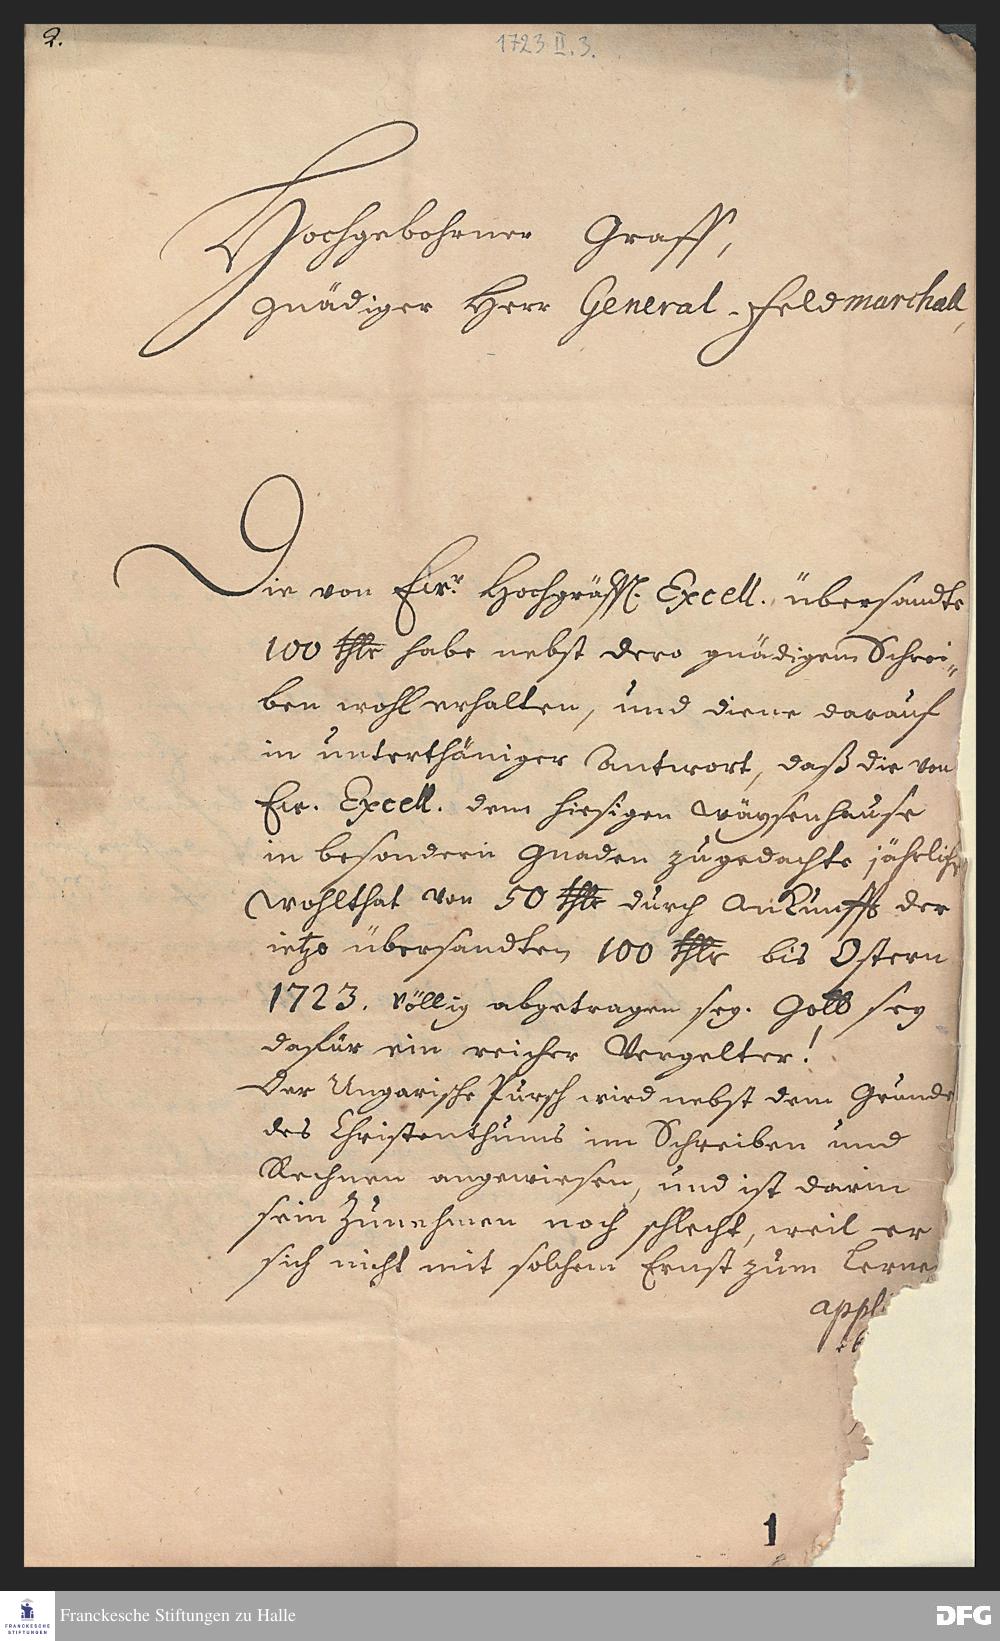 2.
1723 II. 3.
Hochgebohrner Graff,
gnädiger Herr General-Feldmarchall,
Die von Ewr. Hochgräffl. Excell. übersandte
100 thlr habe nebst dero gnädigem Schrei„
ben wohl erhalten, und diene darauf
in unterthäniger Antwort, daß die von
Ew. Excell. dem hiesigen Wäysenhause
in besondern Gnaden zugedachte jährliche
Wohlthat von 50 thlr durch Ankunfft der
ietzo übersandten 100 thlr bis Ostern
1723. völlig abgetragen sey. Gott sey
dafür ein reicher Vergelter!
Der Ungarische Pursch wird nebst dem Grunde
des Christenthums im Schreiben und
Rechnen angewiesen, und ist darin
sein Zunehmen noch schlecht, weil er
sich nicht mit solchem Ernst zum Lerne
appli
1
Franckesche Stiftungen zu Halle
FRANCKESCHE
STIFTUNGEN
DFG